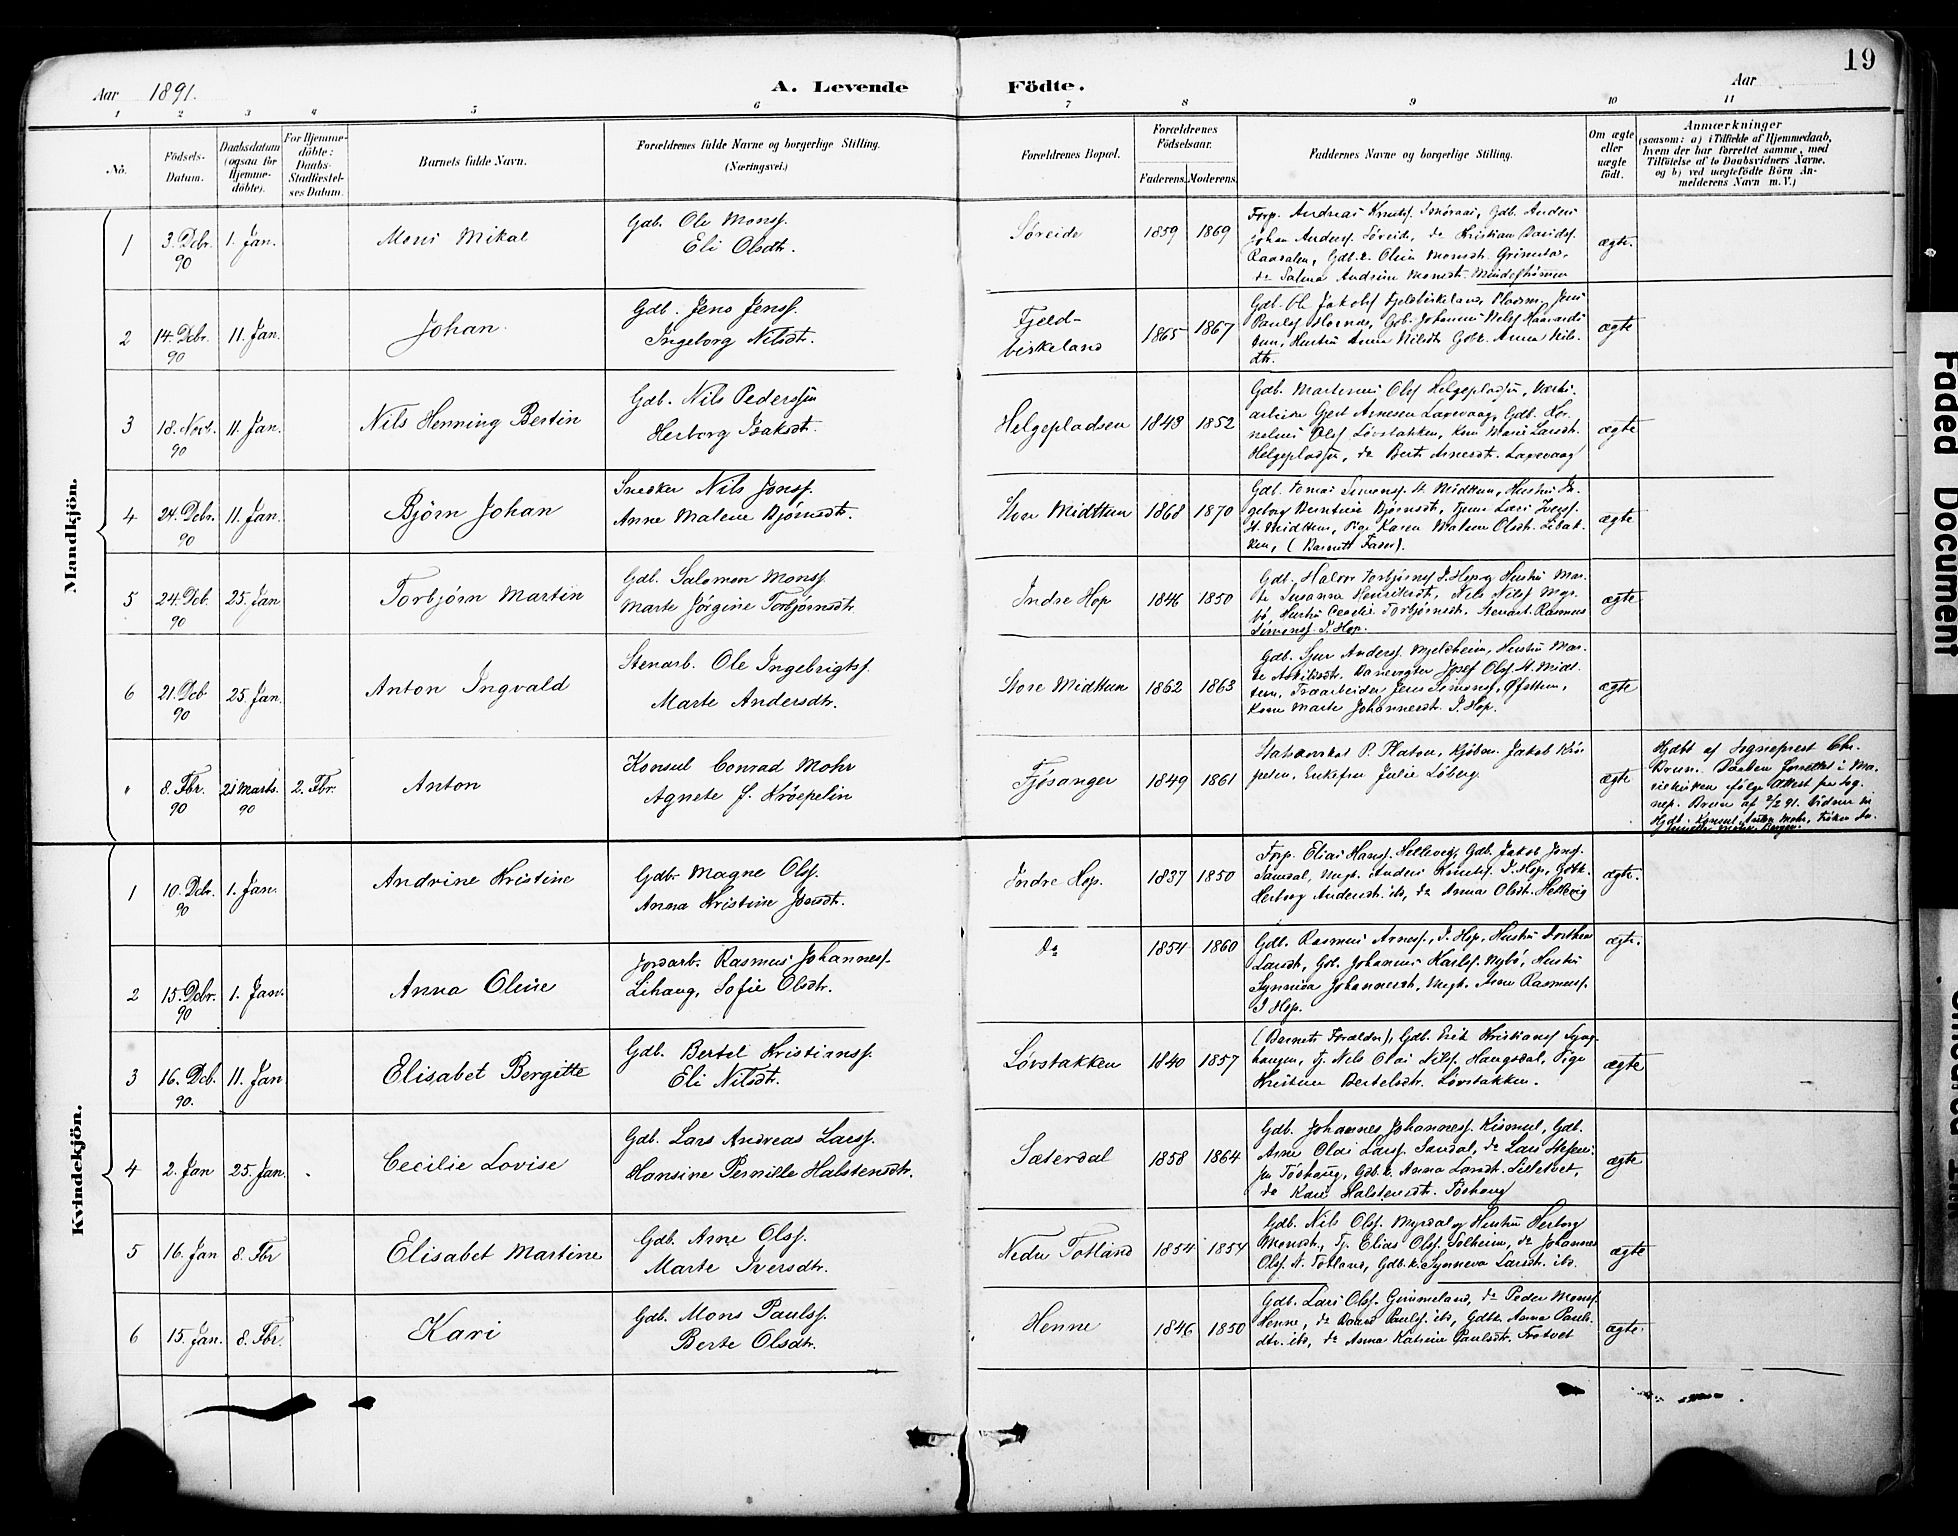 19
Aar 1891.
A. Levende Födte.
Aar
1 2 3 4 5 6 7 8 9 10 11
No.
Födsels-Datum.
Daabsdatum (ogsaa for Hjemmedöbte).
For Hjemmedöbte: Daabs-Stadfæstelses Datum.
Barnets fulde Navn.
Forældrenes fulde Navne og borgerlige Stilling. (Næringsvei.)
Forældrenes Bopæl.
Forældrenes Födselsaar.
Faderens. Moderens.
Faddernes Navne og borgerlige Stilling.
Om ægte eller uægte födt.
Anmærkninger
(saasom: a) i Tilfælde af Hjemmedaab, hvem der har forrettet samme, med Tilföielse af to Daabsvidners Navne, og b) ved uægtefödte Börn Anmelderens Navn m. V.)
Mandkjön.
1 3. Dcbr. 90 1. Jan. Mons Mikal
Gdb. Ole Monss.
Eli Olsdtr.
Søreide 1859 1869
Forp. Andreas Knuts. Gdb. Anders
Johan Anderss. Søreide, do Kristian Davids.
Gdb.k. Oline Monsdt. Grimstad,
do Salmo Andrine Monsdt.
ægte.
2 14. Dcbr. 90 11. Jan. Johan.
Gdb. Jens Jenss.
Ingeborg Nilsdtr.
Fjeld-
birkeland 1865 1867
Gdb. Ole Jakobss Fjeldbirkeland, Jens
Paulss Gdb. Johannes Nilss
Hustru Anna Nilsdtr Gdbk. Anna Nils-
dtr.
ægte
3 18. Novb. 90 11. Jan. Nils Henning Bertin
Gdb. Nils Pederssen
Herborg Isaksdt.
Helgepladsen 1843 1852
Gdb. Martinus Olss Helgepladsen,
arbeider Gert Arnesen Laxevaag, Gdb. Kor-
nelius Olss Løvstakken, Kone Marie Larsdt.
Helgepladsen, do Berte Arnesdt. Laxevaag
ægte
4 24. Dcbr. 90 11. Jan. Björn Johan
Snedker Nils Jonss.
Anne Malene Bjørnsdtr.
Store Midttun 1868 1870
Gdb. Tomas Simonss. St. Midttun, Hustru In-
geborg Berntine Bjørnsdt, Tjener Lars Iverss.
St. Midttun, Pige Karen Malene Olsdt.
(Barnets Fader).
ægte
5 24. Dcb. 90 25. Jan Torbjörn Martin
Gdb. Salomon Monss.
Marte Jörgine Torbjørnsdtr.
Indre Hop 1846 1850
Gdb. Halvor Torbjørnss I. Hop og Hustru Mar-
te Susanna Henriksdt, Nils Nilss Myr-
bö, Hustru Cecilie Torbjørnsdt. Stenarb. Rasmus
Simonss. I. Hop.
ægte
6 21. Dcb. 90 25. Jan. Anton Ingvald
Stenarb. Ole Ingebrigtss.
Marte Andersdtr.
Store Midttun 1862 1863
Gdb. Sjur Anderss. Mjeldheim, Hustru Mar-
te Banevogter Josef Olss St. Midt-
tun, Træarbeider Jens Simonss, Øfsttun,
Kone Marte Johannesdt. I. Hop.
ægte
" 8. Fbr. 90 21 Marts. 90 2. Fbr. Anton
Konsul Conrad Mohr
Agnete J. Kröepelin
Fjøsanger 1849 1861
P. Platou, Kjöbm. Jakob
Enkefru Julie Løberg.
ægte
Hjdbt af Sogneprest Chr.
Brun. Daaben forrettet i Ma-
riekirken ifølge Attest fra Sog-
nep. Brun af 2/2 91. Vidner
Hjdt: Konsul Anton Mohr, Frøken
Bergen.
Kvindekjön.
1 10. Dcbr. 90 1. Jan. Andrine Kristine
Gdbr. Magne Olss.
Anna Kristine Jonsdtr.
Indre Hop. 1837 1850
Forp. Elias Hanss. Hellevig, Gdb. Jakob Jonss.
Samdal, Ungk. Anders Knutss. I. Hop, Gdbk.
Herborg Andersdt. ibd, do Anna Olsdt. Hellevig
ægte.
2 15. Dcbr. 90 1. Jan. Anna Oline
Jordarb. Rasmus Johanness.
Lihaug, Sofie Olsdtr.
do 1854 1860
Gdb. Rasmus Arness., I. Hop, Hustru Dorthea
Larsdt, Gdb. Johannes Karlss. Myrbö, Hustru
Synneva Johannesdt, Ungk. Arne Rasmuss.
I Hop.
ægte.
3 16. Dcb. 90. 11. Jan Elisabet Bergitte
Gdb. Bertel Kristianss.
Eli Nilsdtr.
Løvstakken 1840 1857
(Barnets Forældre), Gdb. Erik Kristianss
haugen, Tj. Nils Olai Nilss. Haugsdal, Pige
Kristine Bertelsdtr. Løvstakken.
ægte
4 2. Jan 25. Jan. Cecilie Lovise
Gdb. Lars Andreas Larss.
Hansine Pernille Halstensdtr.
Sæterdal 1858 1864
Gdb. Johannes Johanness. Kismul, Gdb.
Arne Olai Larss. Sandal, do Lars Steffen-
sen Töshaug, Gdb.k. Anna Larsdt. Lilletvet,
do Kari Halstensdtr. Töshaug
ægte
5 16. Jan 8. Fbr Elisabet Martine
Gdb. Arne Olss.
Marte Iversdtr.
Nedre Totland 1854 1854
Gdb. Nils Olss. Myrdal og Hustru Herborg
Monsdt., Tj. Elias Olss. Solheim, do Johannes
Olss. N. Totland, Gdb.k. Synneva Larsdt. ibd.
ægte
6 15. Jan. 8. Fbr. Kari
Gdb. Mons Paulss.
Berte Olsdtr.
Henne 1846 1850
Gdb. Lars Olss. Grimmeland, do Peder Monss.
Henne, do Paulss. ibd, Gdbk. Anna Pauls-
dtr. ibd, do Anna Katrine Paulsdtr. Trotvet
ægte.
Faded Document